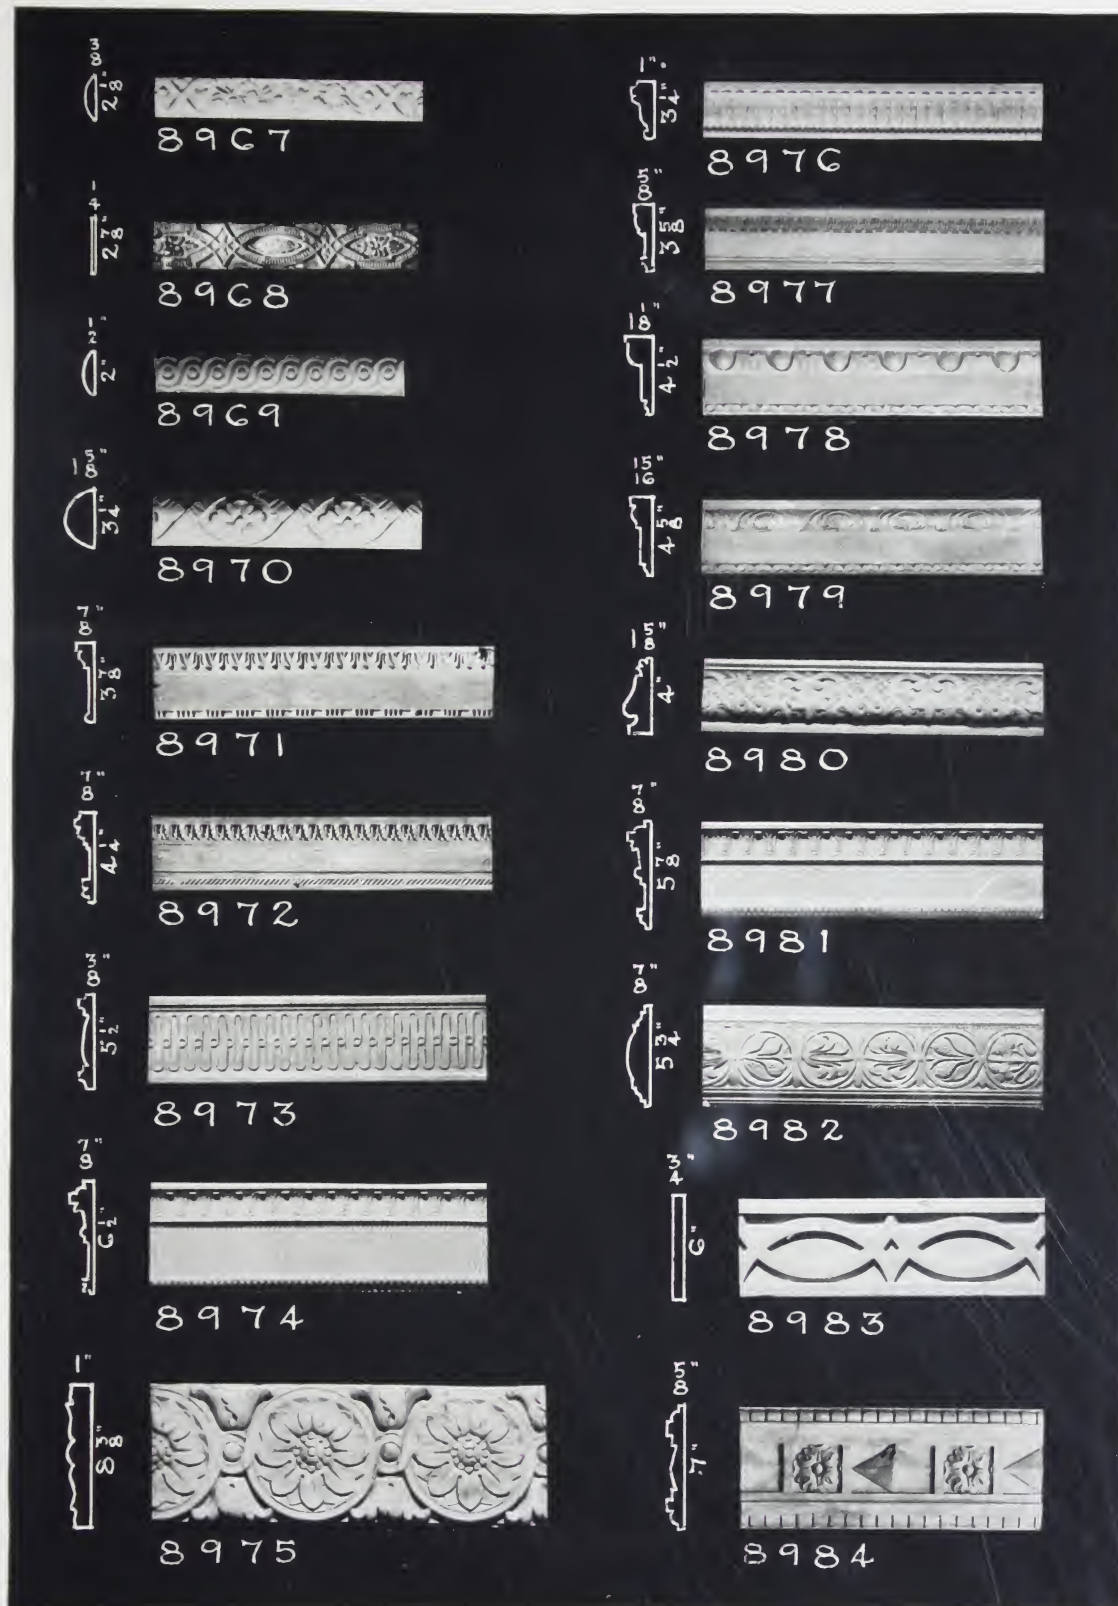 3/8
2 1/8"
8967
1/4
2 7/8"
8968
1/2"
2"
8969
1 5/8"
3 1/4"
8970
7/8"
3 7/8"
8971
7/8"
4 1/4"
8972
3/8"
5 1/2"
8973
7/8"
6 1/2"
8974
1"
8 3/8"
8975
1".
3 1/4"
8976
5/8"
3 5/8"
8977
1 1/8"
4 1/2"
8978
15/16"
4 5/8"
8979
1 5/8"
4"
8980
7/8"
5 7/8"
8981
7/8"
5 3/4"
8982
3/4"
6"
8983
5/8"
7"
8984